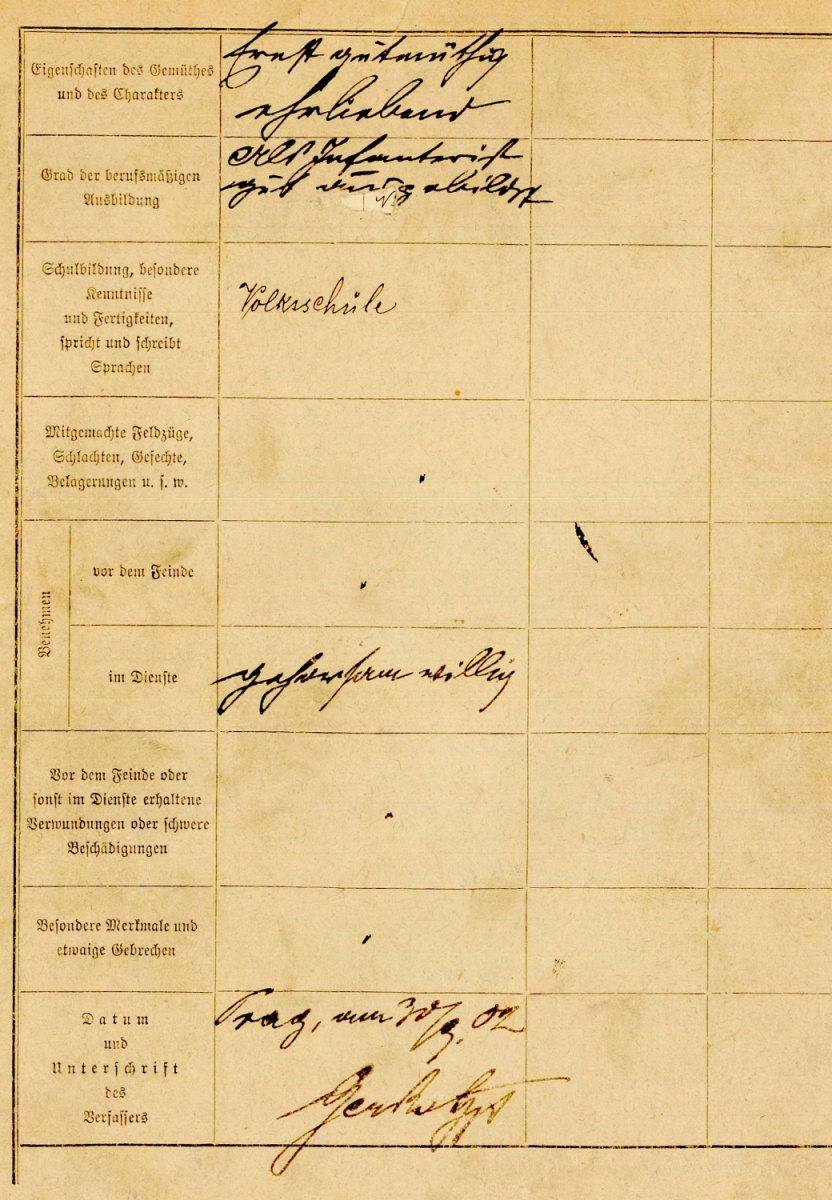 Eigenschaften des Gemüthes
und des Charakters
Ernst gutmüthig
ehrliebend
Grad der berufsmäßigen
Ausbildung
Als Infanterist
gut ausgebildet
Schulbildung, besondere
Kenntnisse
und Fertigkeiten,
spricht und schreibt
Sprachen
Volksschule
Mitgemachte Feldzüge,
Schlachten, Gefechte,
Belagerungen u. s. w.
Benehmen
vor dem Feinde
im Dienste
gehorsam willig
Vor dem Feinde oder
sonst im Dienste erhaltene
Verwundungen oder schwere
Beschädigungen
Besondere Merkmale und
etwaige Gebrechen
Datum
und
Unterschrift
des
Verfassers
Prag, am 30/9. 02